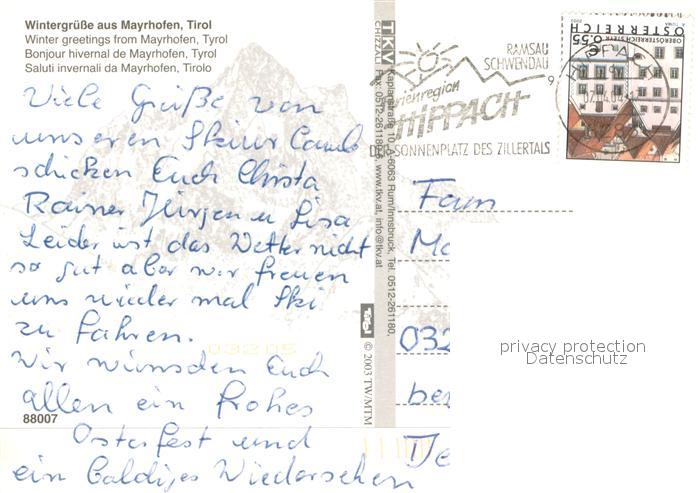 Wintergrüße aus Mayrhofen, Tirol
Winter greetings from Mayrhofen, Tyrol
Bonjour hivernal de Mayrhofen, Tyrol
Saluti invernali da Mayrhofen, Tirolo
Viele Grüße von
unseren Skiurlaub
schicken Euch Christa
Rainer Jürgen u Lisa
Leider ist das Wetter nicht
so gut aber wir freuen
uns wieder mal Ski
zu fahren.
Wir wünschen Euch
allen ein frohes
Osterfest und
ein baldiges Wiedersehen
88007
TKV
Kaplanstraße 10, A-6063 Rum/Innsbruck, Tel. 0512-261180,
Fax: www.tkv.at, info@tkv.at
Tirol
© 2003 TW/MTM
RAMSAU
SCHWENDAU
HIPPACH
DER SONNENPLATZ DES ZILLERTALS
€ 0.55
OBERÖSTERREICH STEYR
ÖSTERREICH
Fam
Mo
032
be
privacy protection
Datenschutz